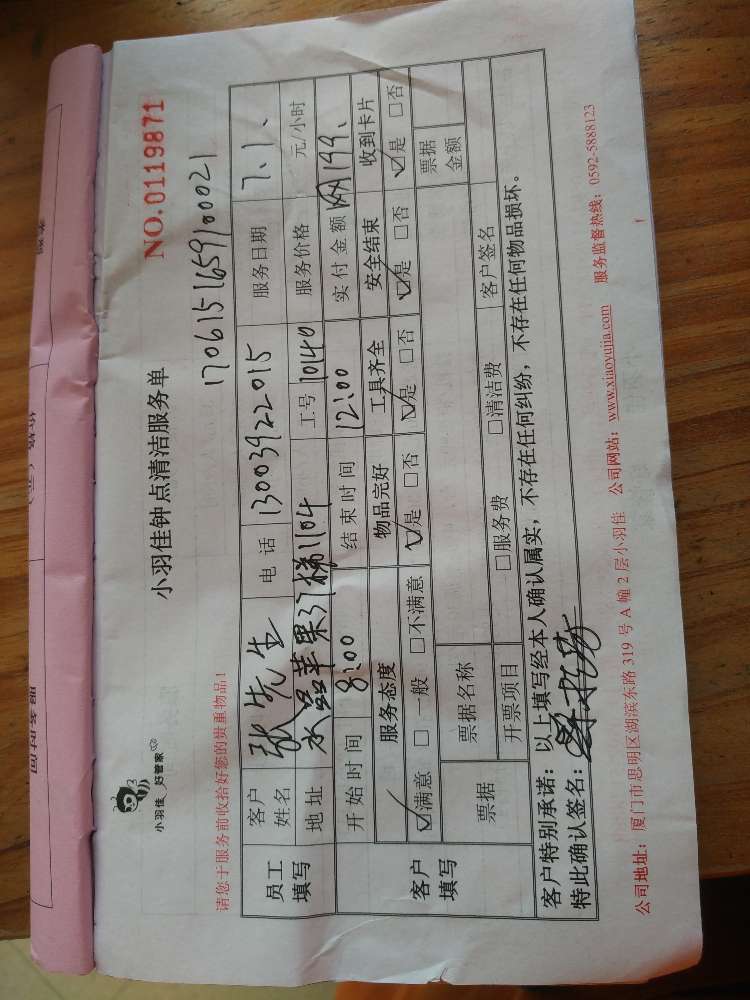 小羽佳 好管家
小羽佳钟点清洁服务单
NO.0119871
请您于服务前收拾好您的贵重物品!
170615165910002​1
员工填写
客户姓名 张先生 电话 13003922015 服务日期 7.1.
地址 水晶苹果3梯1104 工号 10140 服务价格 元/小时
开始时间 8:00 结束时间 12:00 实付金额 199.
客户填写
服务态度 物品完好 工具齐全 安全结束 收到卡片
☑满意 □一般 □不满意 ☑是 □否 ☑是 □否 ☑是 □否 ☑是 □否
票据 票据名称 票据金额
开票项目 □服务费 □清洁费 客户签名
客户特别承诺:以上填写经本人确认属实,不存在任何纠纷,不存在任何物品损坏。
特此确认签名:
公司地址:厦门市思明区湖滨东路 319 号 A 幢 2 层小羽佳 公司网站:www.xiaoyujia.com 服务监督热线:0592-5888123